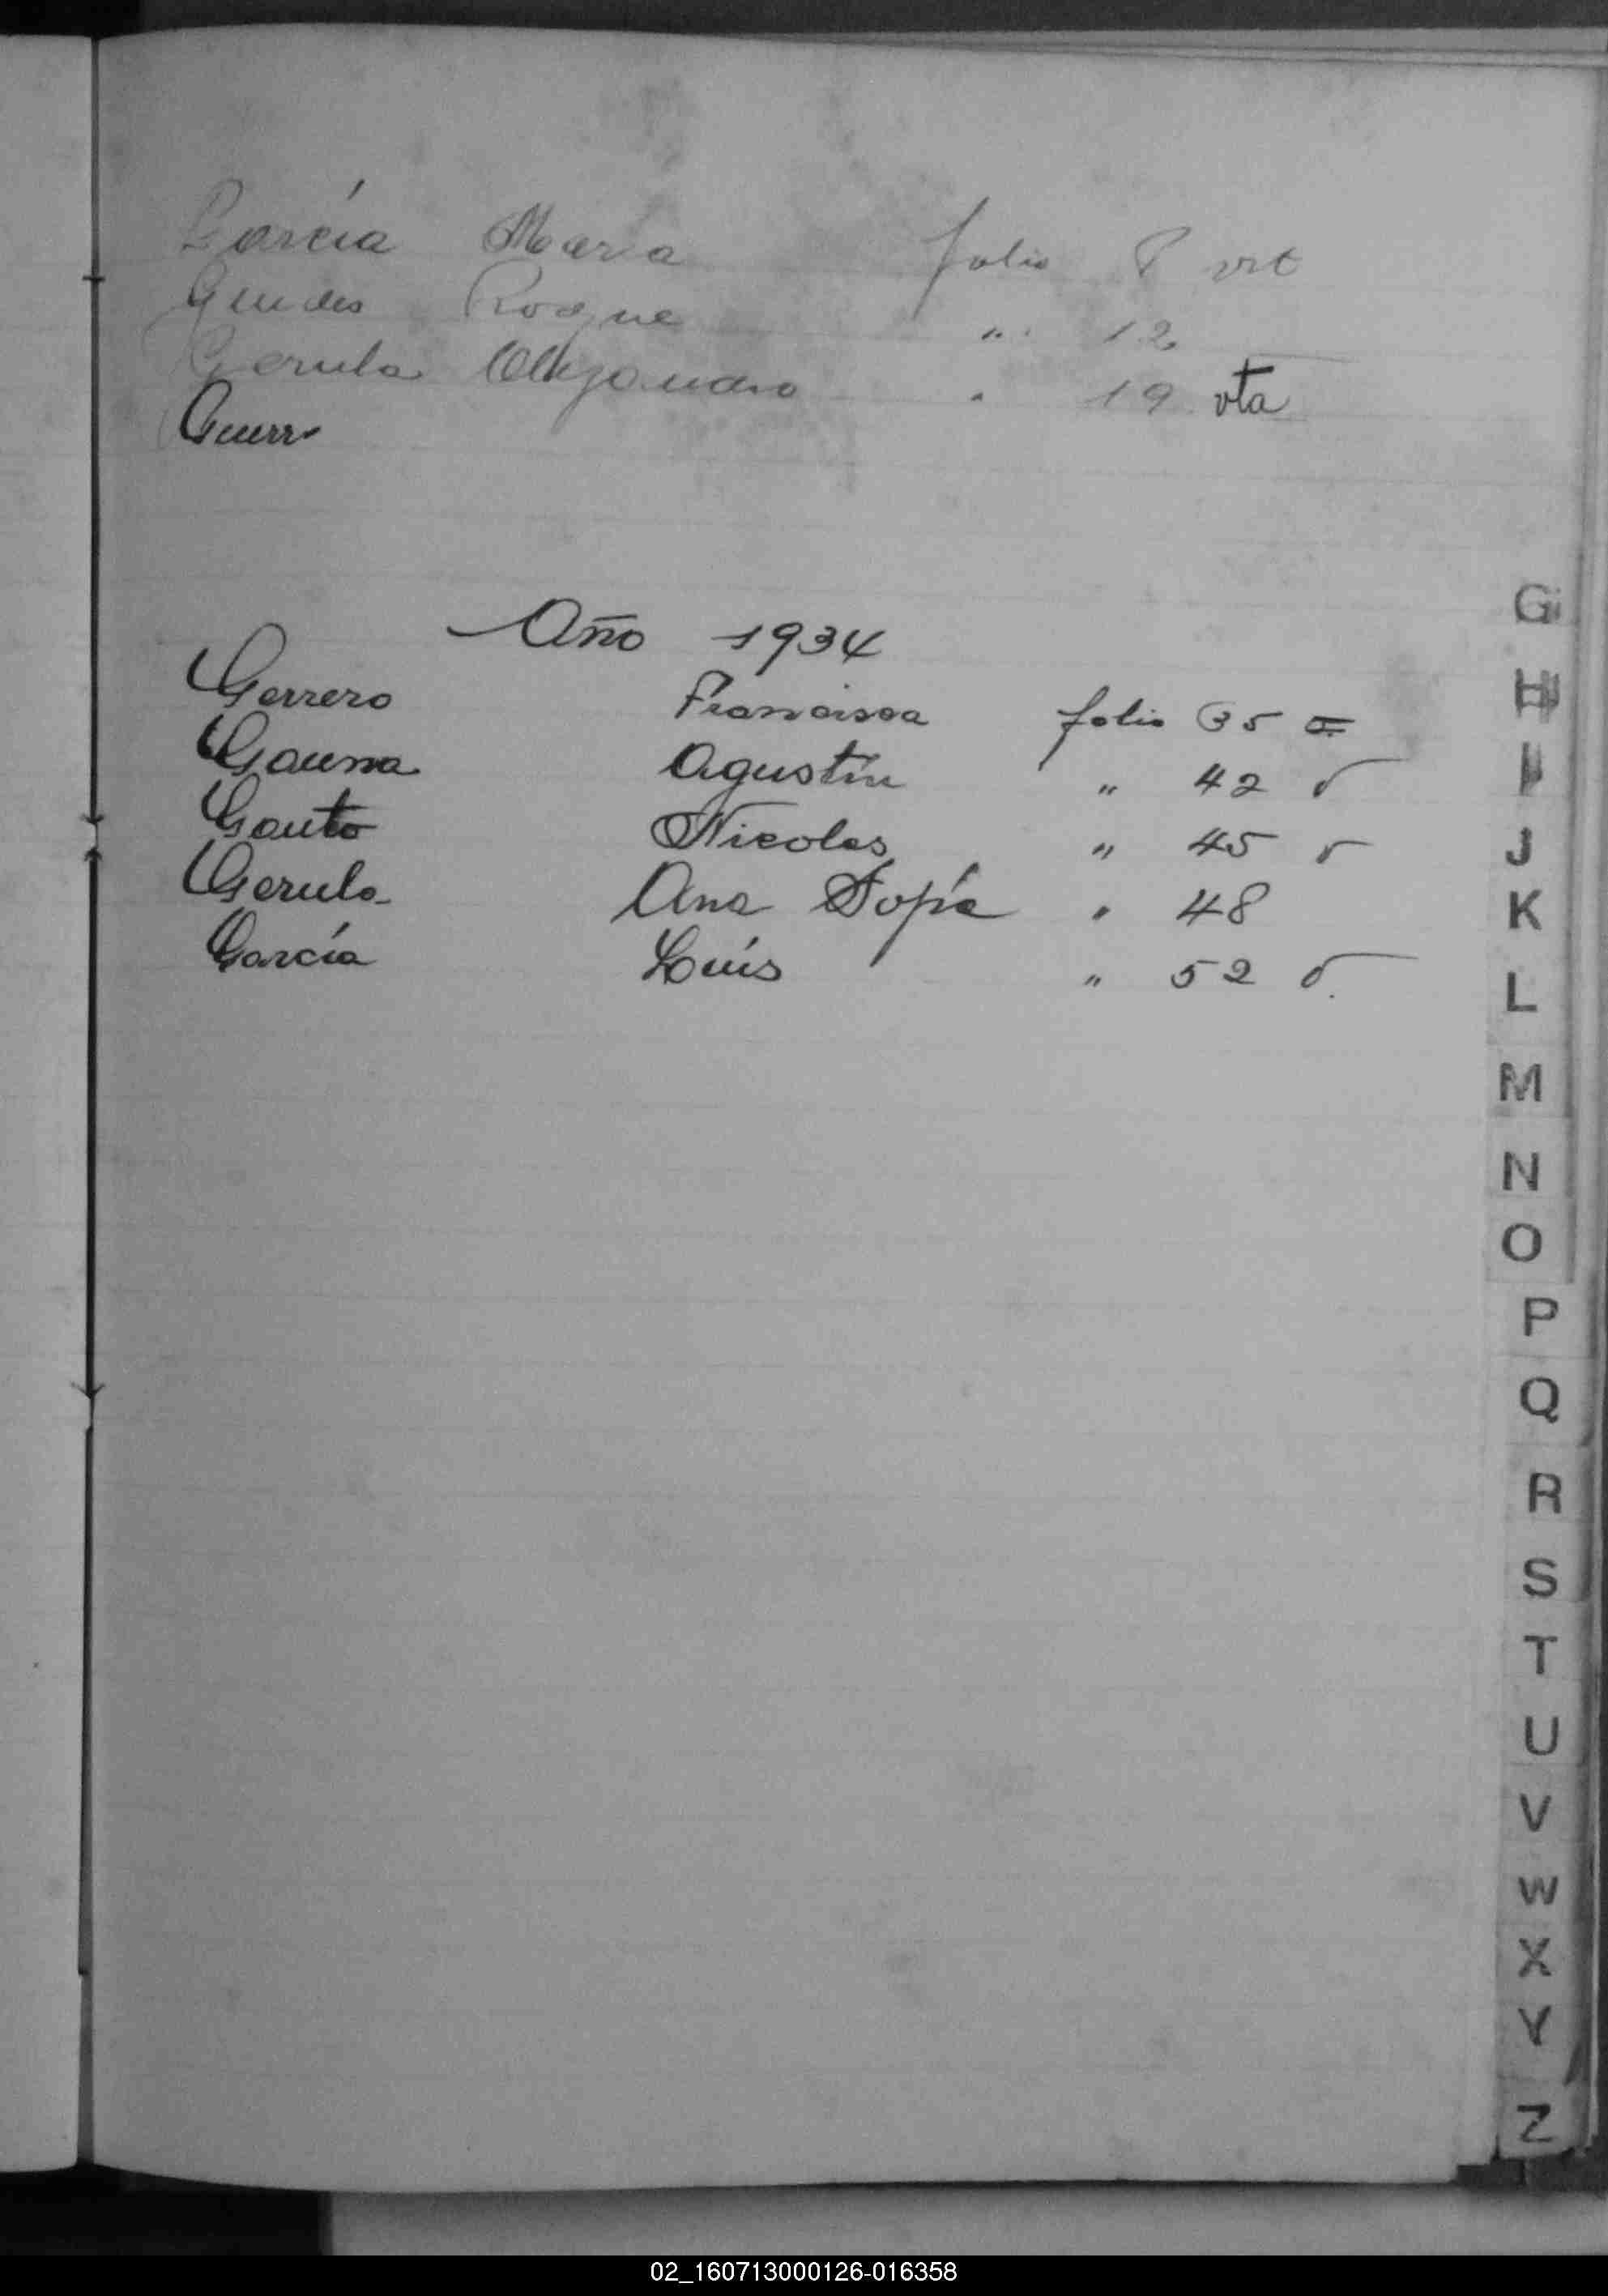 García María folio 8 vtt
Guides Roque " 12
Gerula Alejandro " 19 vta
Guerr
Año 1934
Gerrero Francisca folio 35
Gauna Agustín " 42 v
Gauto Nicolas " 45 v
Gerula Ana Sofía " 48
García Luís " 52 v
G
H
I
J
K
L
M
N
O
P
Q
R
S
T
U
V
W
X
Y
Z
02_160713000126-016358